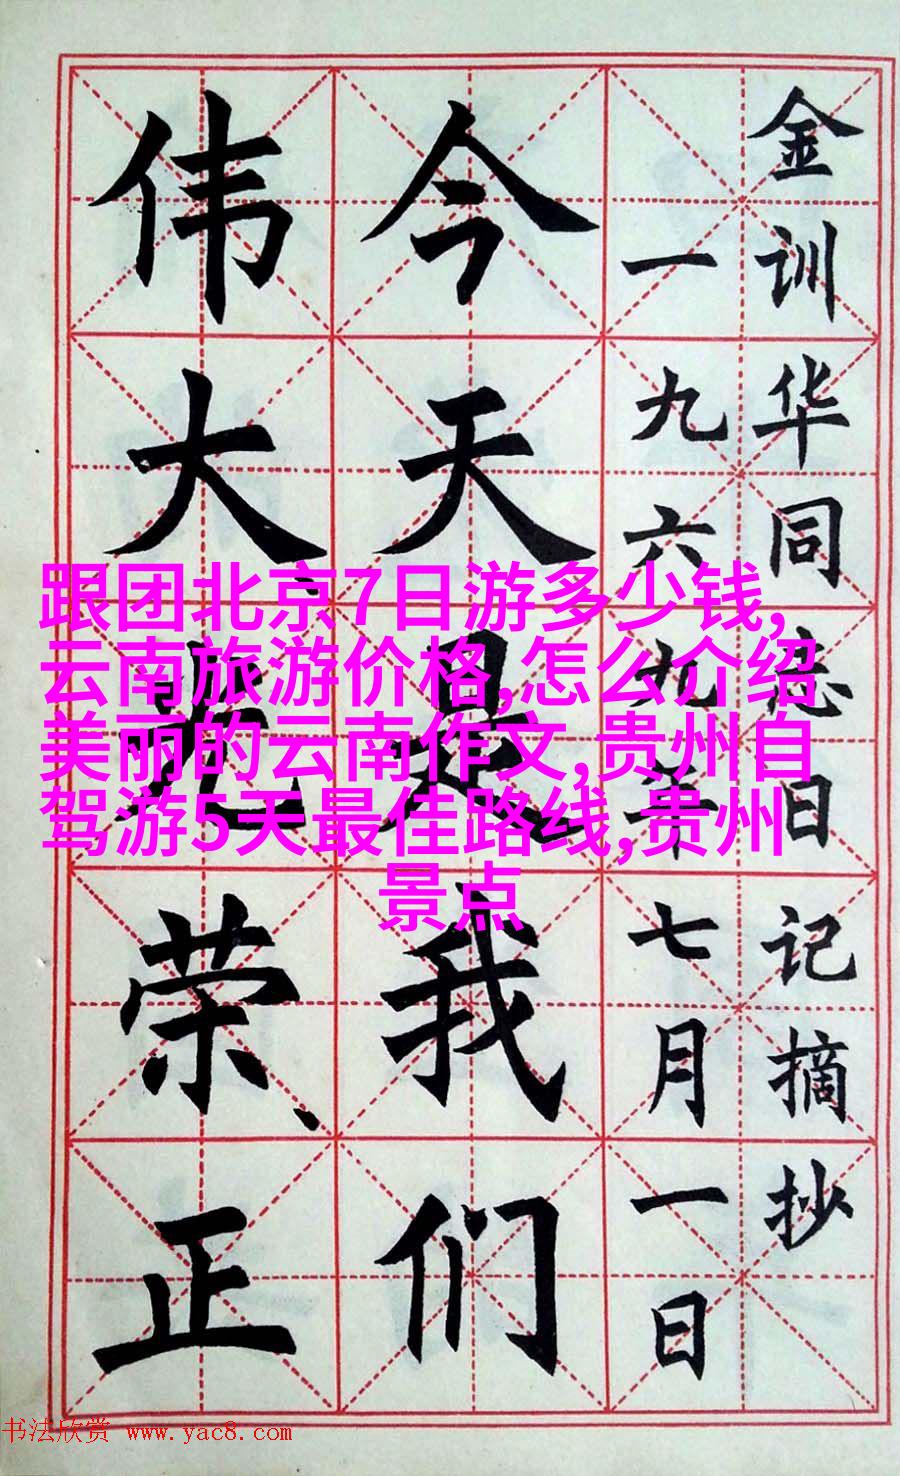 金训华同志日记摘抄
一九六九年七月一日
今天是我们
伟大、光荣、正
跟团北京7日游多少钱,
云南旅游价格,怎么介绍
美丽的云南作文,贵州自
驾游5天最佳路线,贵州
景点
书法欣赏 www.yac8.com